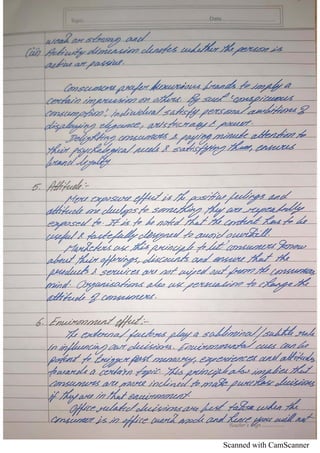 Topic
Date
weak or strong and
(iii) Activity dimension denotes whether the person is
active or passive.
Consumers prefer luxurious brands to imply a
certain impression on others. By such 'conspicuous
consumption', individual satisfy personal ambitions of
displaying elegance, aristocracy & power.
Delighting consumers & paying minute attention to
their psychological needs & satisfying them, ensures
brand loyalty
5. Attitude:-
Mere exposure effect is the positive feelings and
attitude one develops to something they are repeatedly
exposed to. It is to be noted that the content has to be
useful & tastefully designed to avoid overkill.
Marketers use this principle to let consumers know
about their offerings, discounts and ensure that the
products & services are not wiped out from the consumers
mind. Organisations also use persuation to change the
attitude of consumers.
6. Environment effect:-
The external factors play a subliminal/subtle role
in influencing our decisions. Environmental cues can be
potent to trigger past memory, experiences and attitude
towards a certain topic. This principle also implies that
consumers are more inclined to make purchase decisions
if they are in that environment.
Office related decisions are best taken when the
consumer is in office work mode and hence you will not
Teacher's Sign
Scanned with CamScanner